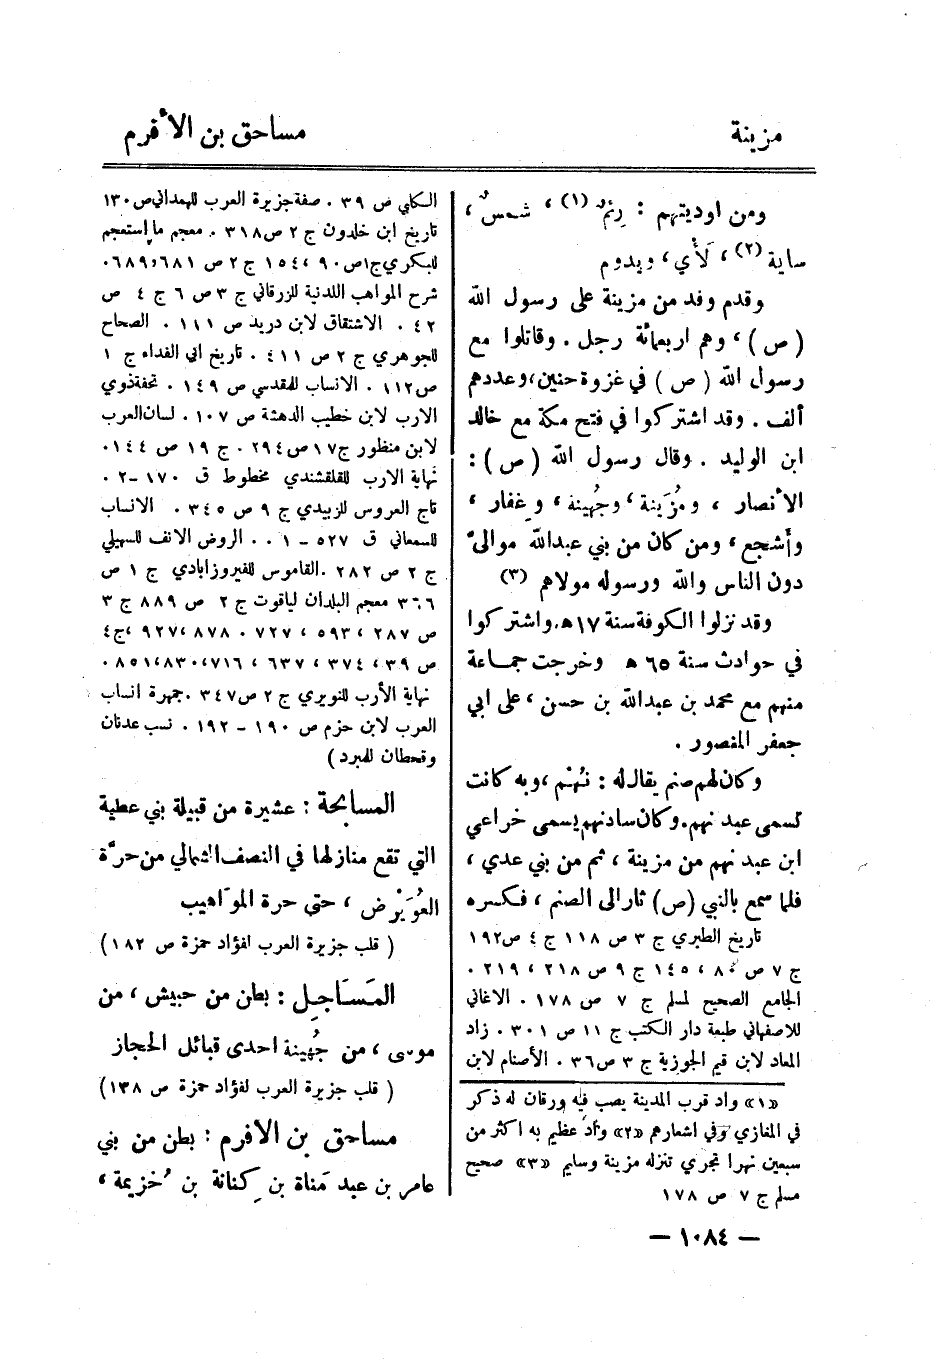 مزينة
مساحق بن الأفرم
ومن اوديتهم : رِئمٌ (١) ، شمسٌ ،
ساية (٢) ، لَأي ، ويدوم
وقدم وفد من مزينة على رسول الله
(ص) ، وهم اربعمائة رجل . وقاتلوا مع
رسول الله (ص) في غزوة حنين ، وعددهم
ألف . وقد اشتركوا في فتح مكة مع خالد
ابن الوليد . وقال رسول الله (ص) :
الأنصار ، ومُزَينة ، وجُهينة ، وغفار ،
وأشجع ، ومن كان من بني عبدالله موالىّ
دون الناس والله ورسوله مولاهم (٣)
وقد نزلوا الكوفة سنة ١٧ هـ ، واشتركوا
في حوادث سنة ٦٥ هـ وخرجت جماعة
منهم مع محمد بن عبدالله بن حسن ، على ابي
جعفر المنصور .
وكان لهم صنم يقال له : نُهْم ، وبه كانت
تسمى عبد نهم . وكان سادنهم يسمى خزاعي
ابن عبد نهم من مزينة ، ثم من بني عدي ،
فلما سمع بالنبي (ص) ثار الى الصنم ، فكسره
تاريخ الطبري ج ٣ ص ١١٨ ج ٤ ص ١٩٢
ج ٧ ص ٨٠ ، ١٤٥ ج ٩ ص ٢١٨ ، ٢١٩ .
الجامع الصحيح لمسلم ج ٧ ص ١٧٨ . الاغاني
للاصفهاني طبعة دار الكتب ج ١١ ص ٣٠١ . زاد
المعاد لابن قيم الجوزية ج ٣ ص ٣٦ . الأصنام لابن
«١» واد قرب المدينة يصب فيه ورقان له ذكر
في المغازي وفي اشعارهم «٢» واد عظيم به اكثر من
سبعين نهرا تجري تنزله مزينة وسليم «٣» صحيح
مسلم ج ٧ ص ١٧٨
الكلبي ص ٣٩ . صفة جزيرة العرب للهمداني ص ١٣٠
تاريخ ابن خلدون ج ٢ ص ٣١٨ . معجم ما استعجم
للبكري ج ١ ص ٩٠ ، ١٥٤ ج ٢ ص ٦٨١ ، ٦٨٩ .
شرح المواهب اللدنية للزرقاني ج ٣ ص ٦ ج ٤ ص
٤٢ . الاشتقاق لابن دريد ص ١١١ . الصحاح
للجوهري ج ٢ ص ٤١١ . تاريخ ابي الفداء ج ١
ص ١١٢ . الانساب للمقدسي ص ١٤٩ . تحفة ذوي
الارب لابن خطيب الدهشة ص ١٠٧ . لسان العرب
لابن منظور ج ١٧ ص ٢٩٤ . ج ١٩ ص ١٤٤ .
نهاية الارب للقلقشندي مخطوط ق ١٧٠ - ٢ .
تاج العروس للزبيدي ج ٩ ص ٣٤٥ . الانساب
للسمعاني ق ٥٢٧ - ١ . . الروض الانف للسهيلي
ج ٢ ص ٢٨٢ . القاموس للفيروزابادي ج ١ ص
٣٦٦ معجم البلدان لياقوت ج ٢ ص ٨٨٩ ج ٣
ص ٢٨٧ ، ٥٩٣ ، ٧٢٧ . ٨٧٨ ، ٩٢٧ ، ج ٤
ص ٣٩ ، ٣٧٤ ، ٦٣٧ ، ٧١٦ ، ٨٣٠ ، ٨٥١ .
نهاية الأرب للنويري ج ٢ ص ٣٤٧ . جمهرة انساب
العرب لابن حزم ص ١٩٠ - ١٩٢ . نسب عدنان
وقحطان للمبرد )
المسابحة : عشيرة من قبيلة بني عطية
التي تقع منازلها في النصف الشمالي من حرّة
العُوَيْرض ، حتى حرة المواهيب
( قلب جزيرة العرب لفؤاد حمزة ص ١٨٢ )
المَسَاجِل : بطن من حبيش ، من
موسى ، من جُهينة احدى قبائل الحجاز
( قلب جزيرة العرب لفؤاد حمزة ص ١٣٨ )
مساحق بن الافرم : بطن من بني
عامر بن عبد مَناة بن كِنانة بن خُزيمة ،
— ١٠٨٤ —